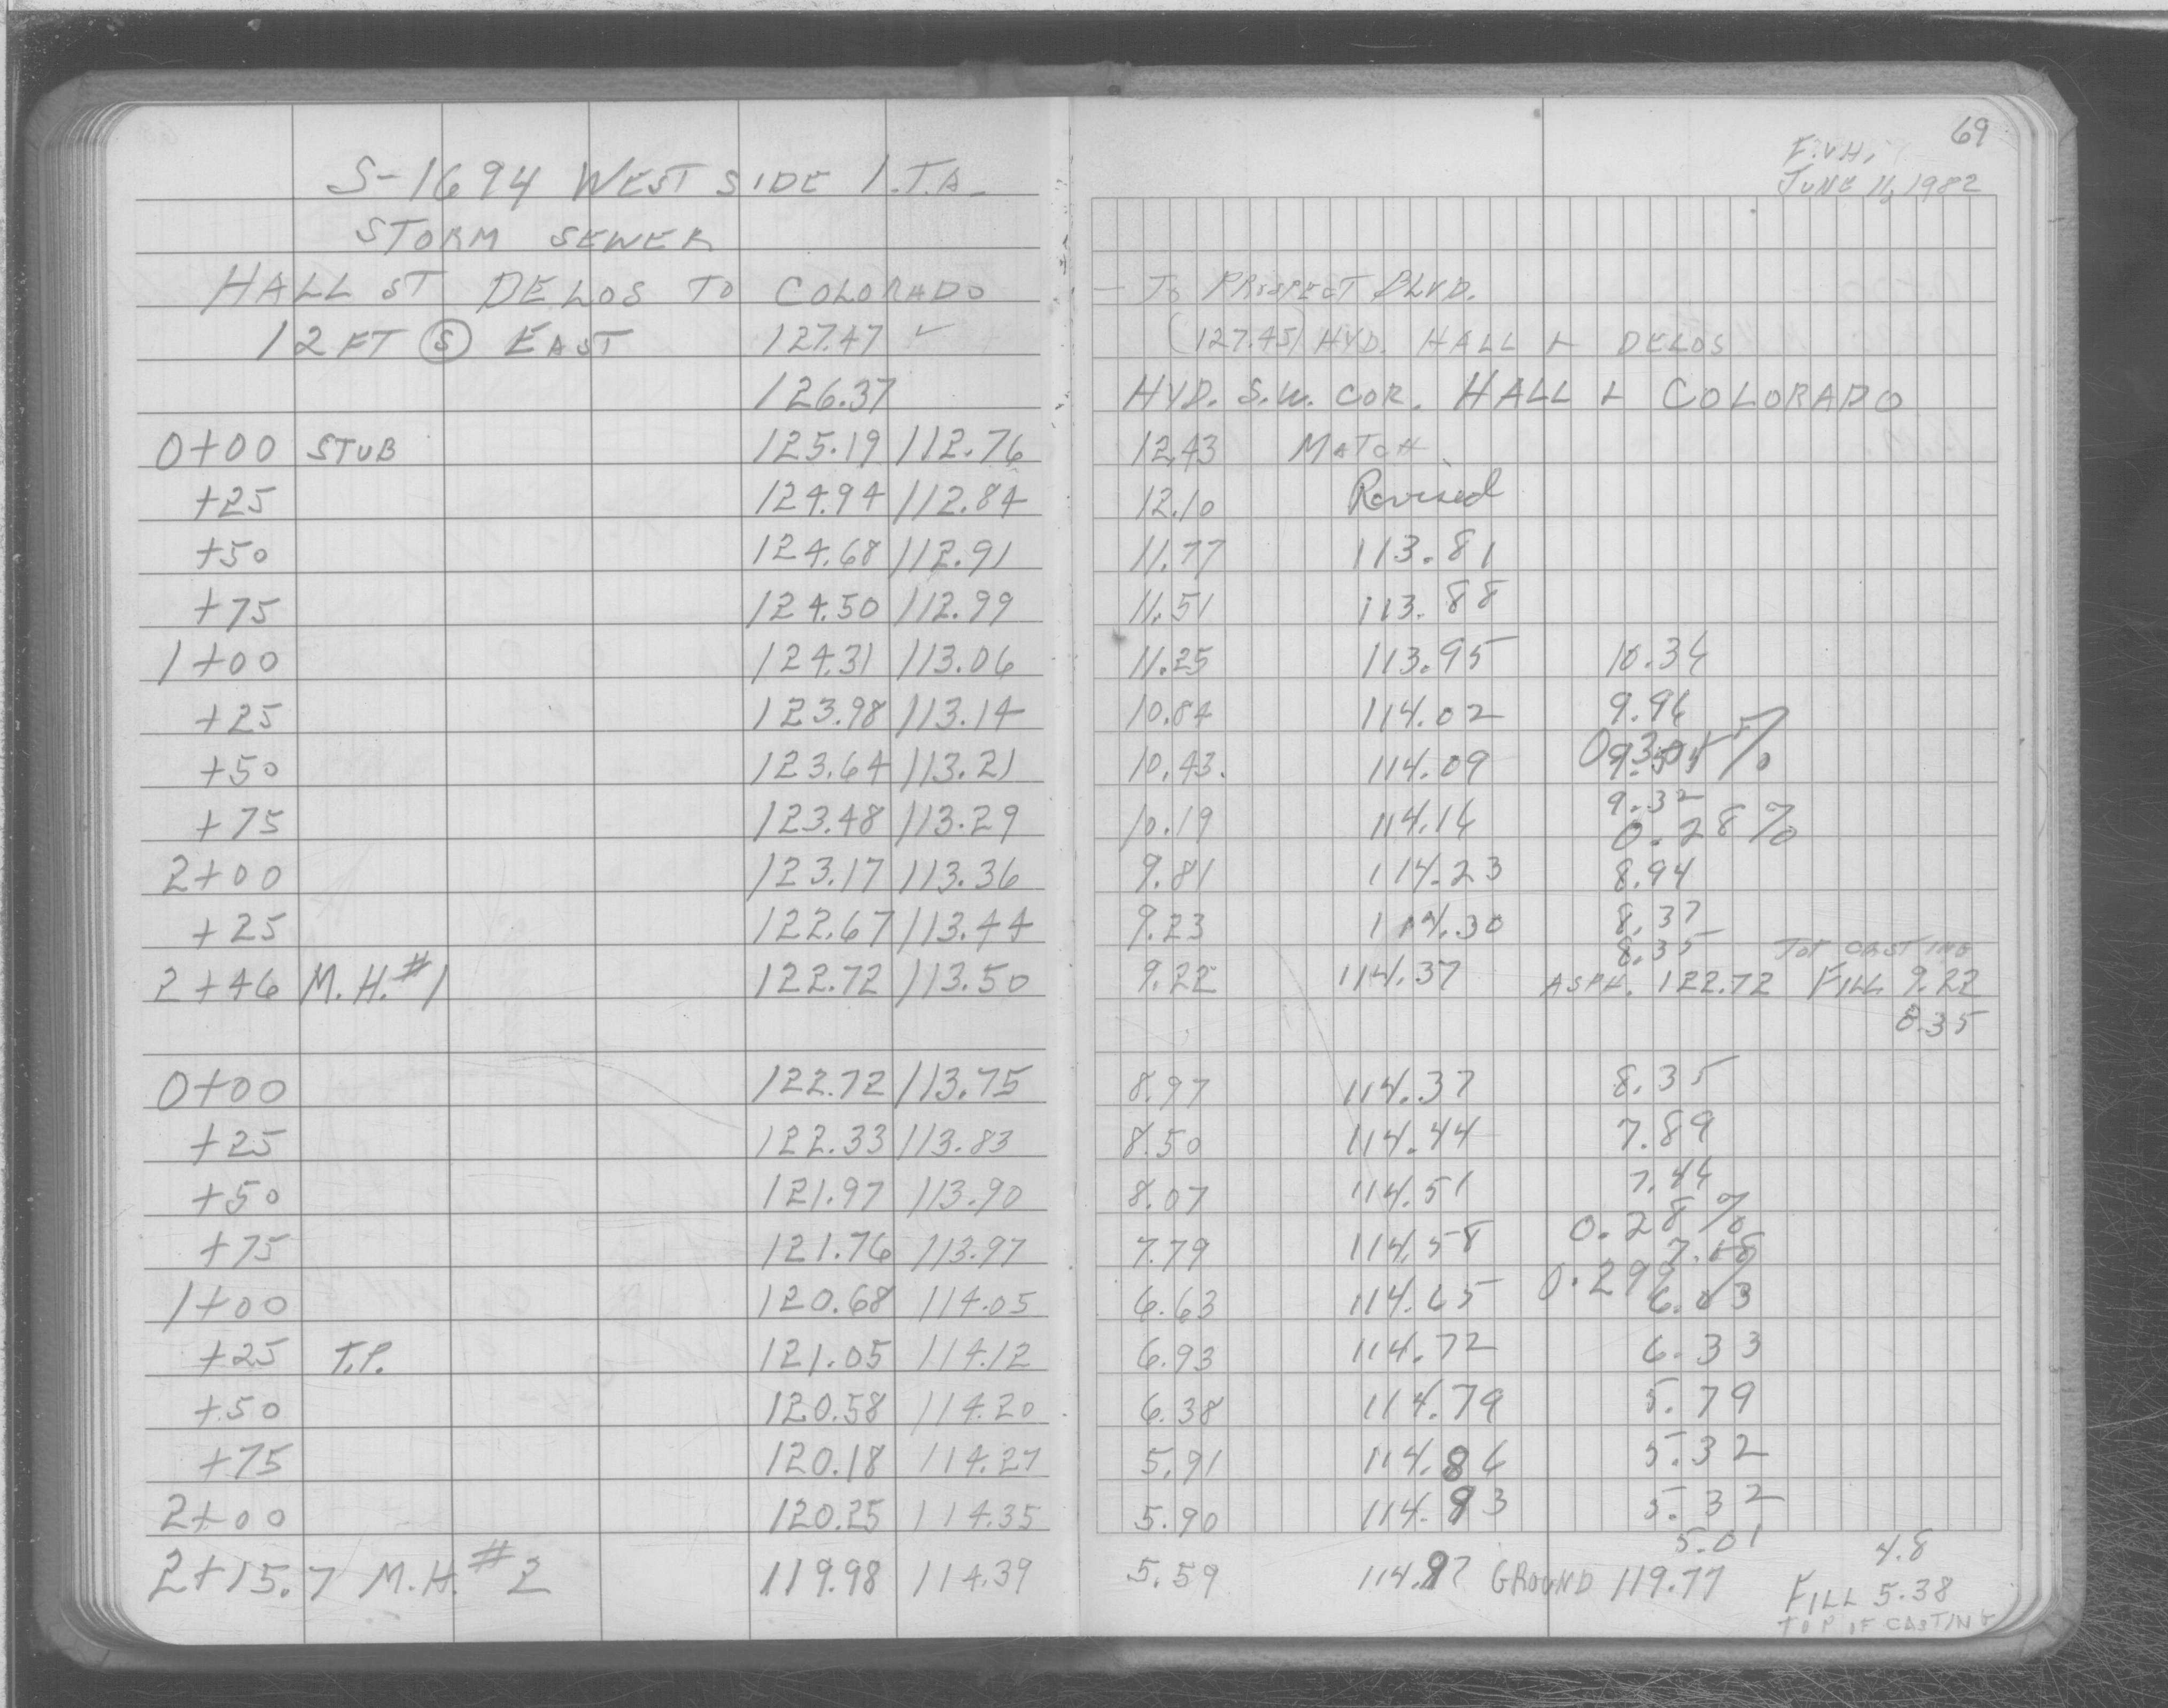 69
F.V.H.
JUNE 11, 1982
S-1694 WEST SIDE I.T.A.
STORM SEWER
HALL ST DELOS TO COLORADO — TO PROSPECT BLVD.
12 FT (S) EAST 127.47 ✓ (127.45) HYD. HALL + DELOS
126.37 HYD. S.W. COR. HALL + COLORADO
0+00 STUB 125.19 112.76 12.43 MATCH
+25 124.94 112.84 12.10 Revised
+50 124.68 112.91 11.77 113.81
+75 124.50 112.99 11.51 113.88
1+00 124.31 113.06 11.25 113.95 10.36
+25 123.98 113.14 10.84 114.02 9.96
+50 123.64 113.21 10.43. 114.09
+75 123.48 113.29 10.19 114.16 9.32
0.28%
2+00 123.17 113.36 9.81 114.23 8.94
+25 122.67 113.44 9.23 114.30 8.37
8.35 TOP CASTING
2+46 M.H.#1 122.72 113.50 9.22 114.37 ASPH. 122.72 FILL 9.22
8.35
0+00 122.72 113.75 8.97 114.37 8.35
+25 122.33 113.83 8.50 114.44 7.89
+50 121.97 113.90 8.07 114.51 7.46
0.28%
+75 121.76 113.97 7.79 114.58 7.18
1+00 120.68 114.05 6.63 114.65 0.29% 6.03
+25 T.P. 121.05 114.12 6.93 114.72 6.33
+50 120.58 114.20 6.38 114.79 5.79
+75 120.18 114.27 5.91 114.86 5.32
2+00 120.25 114.35 5.90 114.93 5.32
5.01 4.8
2+15.7 M.H.#2 119.98 114.39 5.59 114.97 GROUND 119.77 FILL 5.38
TOP OF CASTING